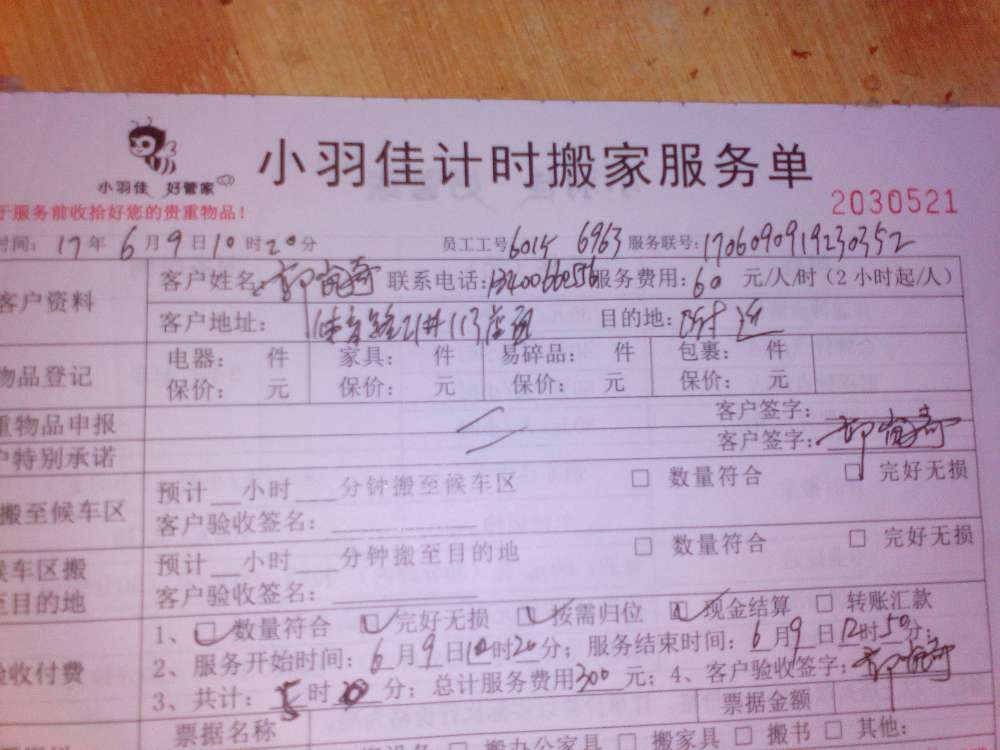 小羽佳 好管家
小羽佳计时搬家服务单
2030521
于服务前收拾好您的贵重物品!
时间: 17年6月9日10时20分 员工工号6015 6963 服务联号:1706090919230352
客户资料
客户姓名: 联系电话:13400660556服务费用:60 元/人/时(2小时起/人)
客户地址: 目的地:附近
物品登记
电器: 件 家具: 件 易碎品: 件 包裹: 件
保价: 元 保价: 元 保价: 元 保价: 元
重物品申报 客户签字:
户特别承诺 客户签字:
搬至候车区
预计__小时___分钟搬至候车区 □ 数量符合 □ 完好无损
客户验收签名:
候车区搬
至目的地
预计__小时___分钟搬至目的地 □ 数量符合 □ 完好无损
客户验收签名:
验收付费
1、☑数量符合 ☑完好无损 ☑按需归位 ☑现金结算 □ 转账汇款
2、服务开始时间:6月9日10时20分;服务结束时间:6月9日12时50分;
3、共计:5时0分;总计服务费用300元;4、客户验收签字:
票据名称 票据金额
□ 搬办公家具 □ 搬家具 □ 搬书 □ 其他: